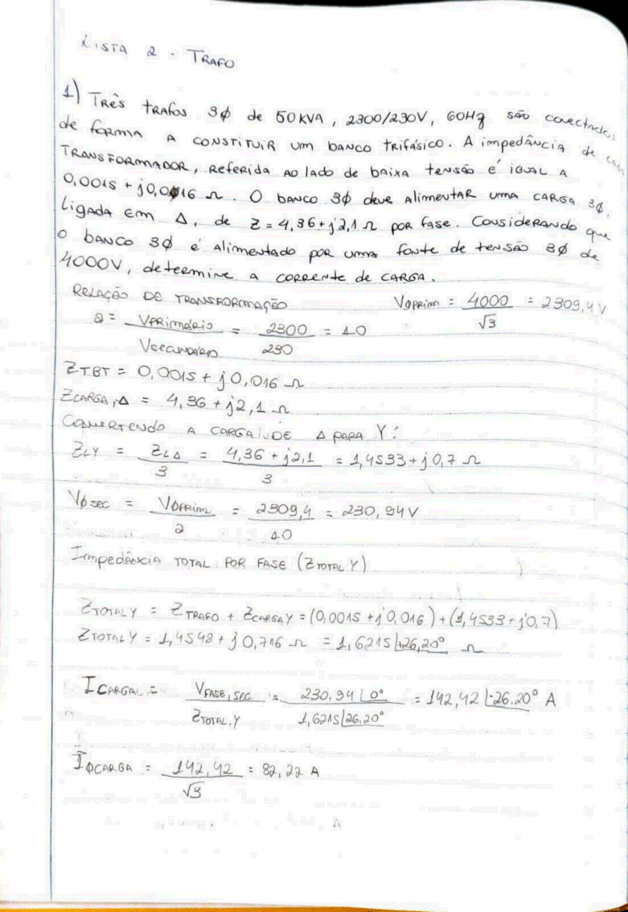 LISTA 2 - TRAFO
1) TRÊS TRAFOS 3φ de 50KVA, 2300/230V, 60Hz são conectados
de forma A CONSTITUIR UM BANCO TRIFÁSICO. A impedância de cada
TRANSFORMADOR, Referida AO lado de baixa tensão é IGUAL A
0,0015 + j0,0016 Ω. O BANCO 3φ deve ALIMENTAR UMA CARGA 3φ,
Ligada em Δ, de Z = 4,36 + j2,1 Ω por fase. Considerando que
o BANCO 3φ é ALIMENTADO por uma fonte de tensão 3φ de
4000V, determine A CORRENTE de CARGA.
RELAÇÃO DE TRANSFORMAÇÃO VφPRIM = 4000/√3 = 2309,4 V
a = VPRIMÁRIO/VSECUNDÁRIO = 2300/230 = 10
ZTBT = 0,0015 + j0,016 Ω
ZCARGA,Δ = 4,36 + j2,1 Ω
CONVERTENDO A CARGA DE Δ PARA Y:
ZLY = ZLΔ/3 = 4,36 + j2,1/3 = 1,4533 + j0,7 Ω
Vφsec = VφPRIM/a = 2309,4/10 = 230,94V
Impedância TOTAL POR FASE (ZTOTAL Y)
ZTOTALY = ZTRAFO + ZCARGAY = (0,0015 + j0,016) + (1,4533 + j0,7)
ZTOTALY = 1,4548 + j0,716 Ω = 1,6215∠26,20° Ω
ICARGAL = VFASE,SEC/ZTOTAL,Y = 230.94∠0°/1,6215∠26.20° = 142,42∠-26.20° A
IφCARGA = 142,42/√3 = 82,22 A